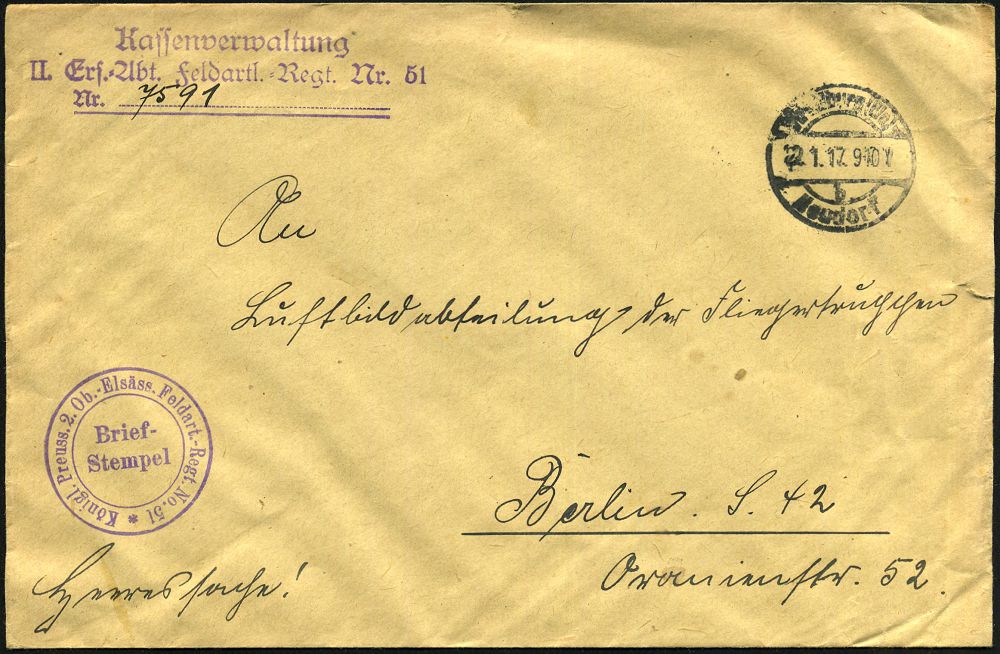 Kassenverwaltung
II. Ers.-Abt. Feldartl.-Regt. Nr. 51
Nr. 7591
1.17. 9-10 V
b
Neudorf
An
Luftbildabteilung der Fliegertruppen
Königl. Preuss. 2. Ob.-Elsäss. Feldart.-Regt. No. 51 *
Brief-
Stempel
Berlin. S. 42
Oranienstr. 52.
Heeressache!